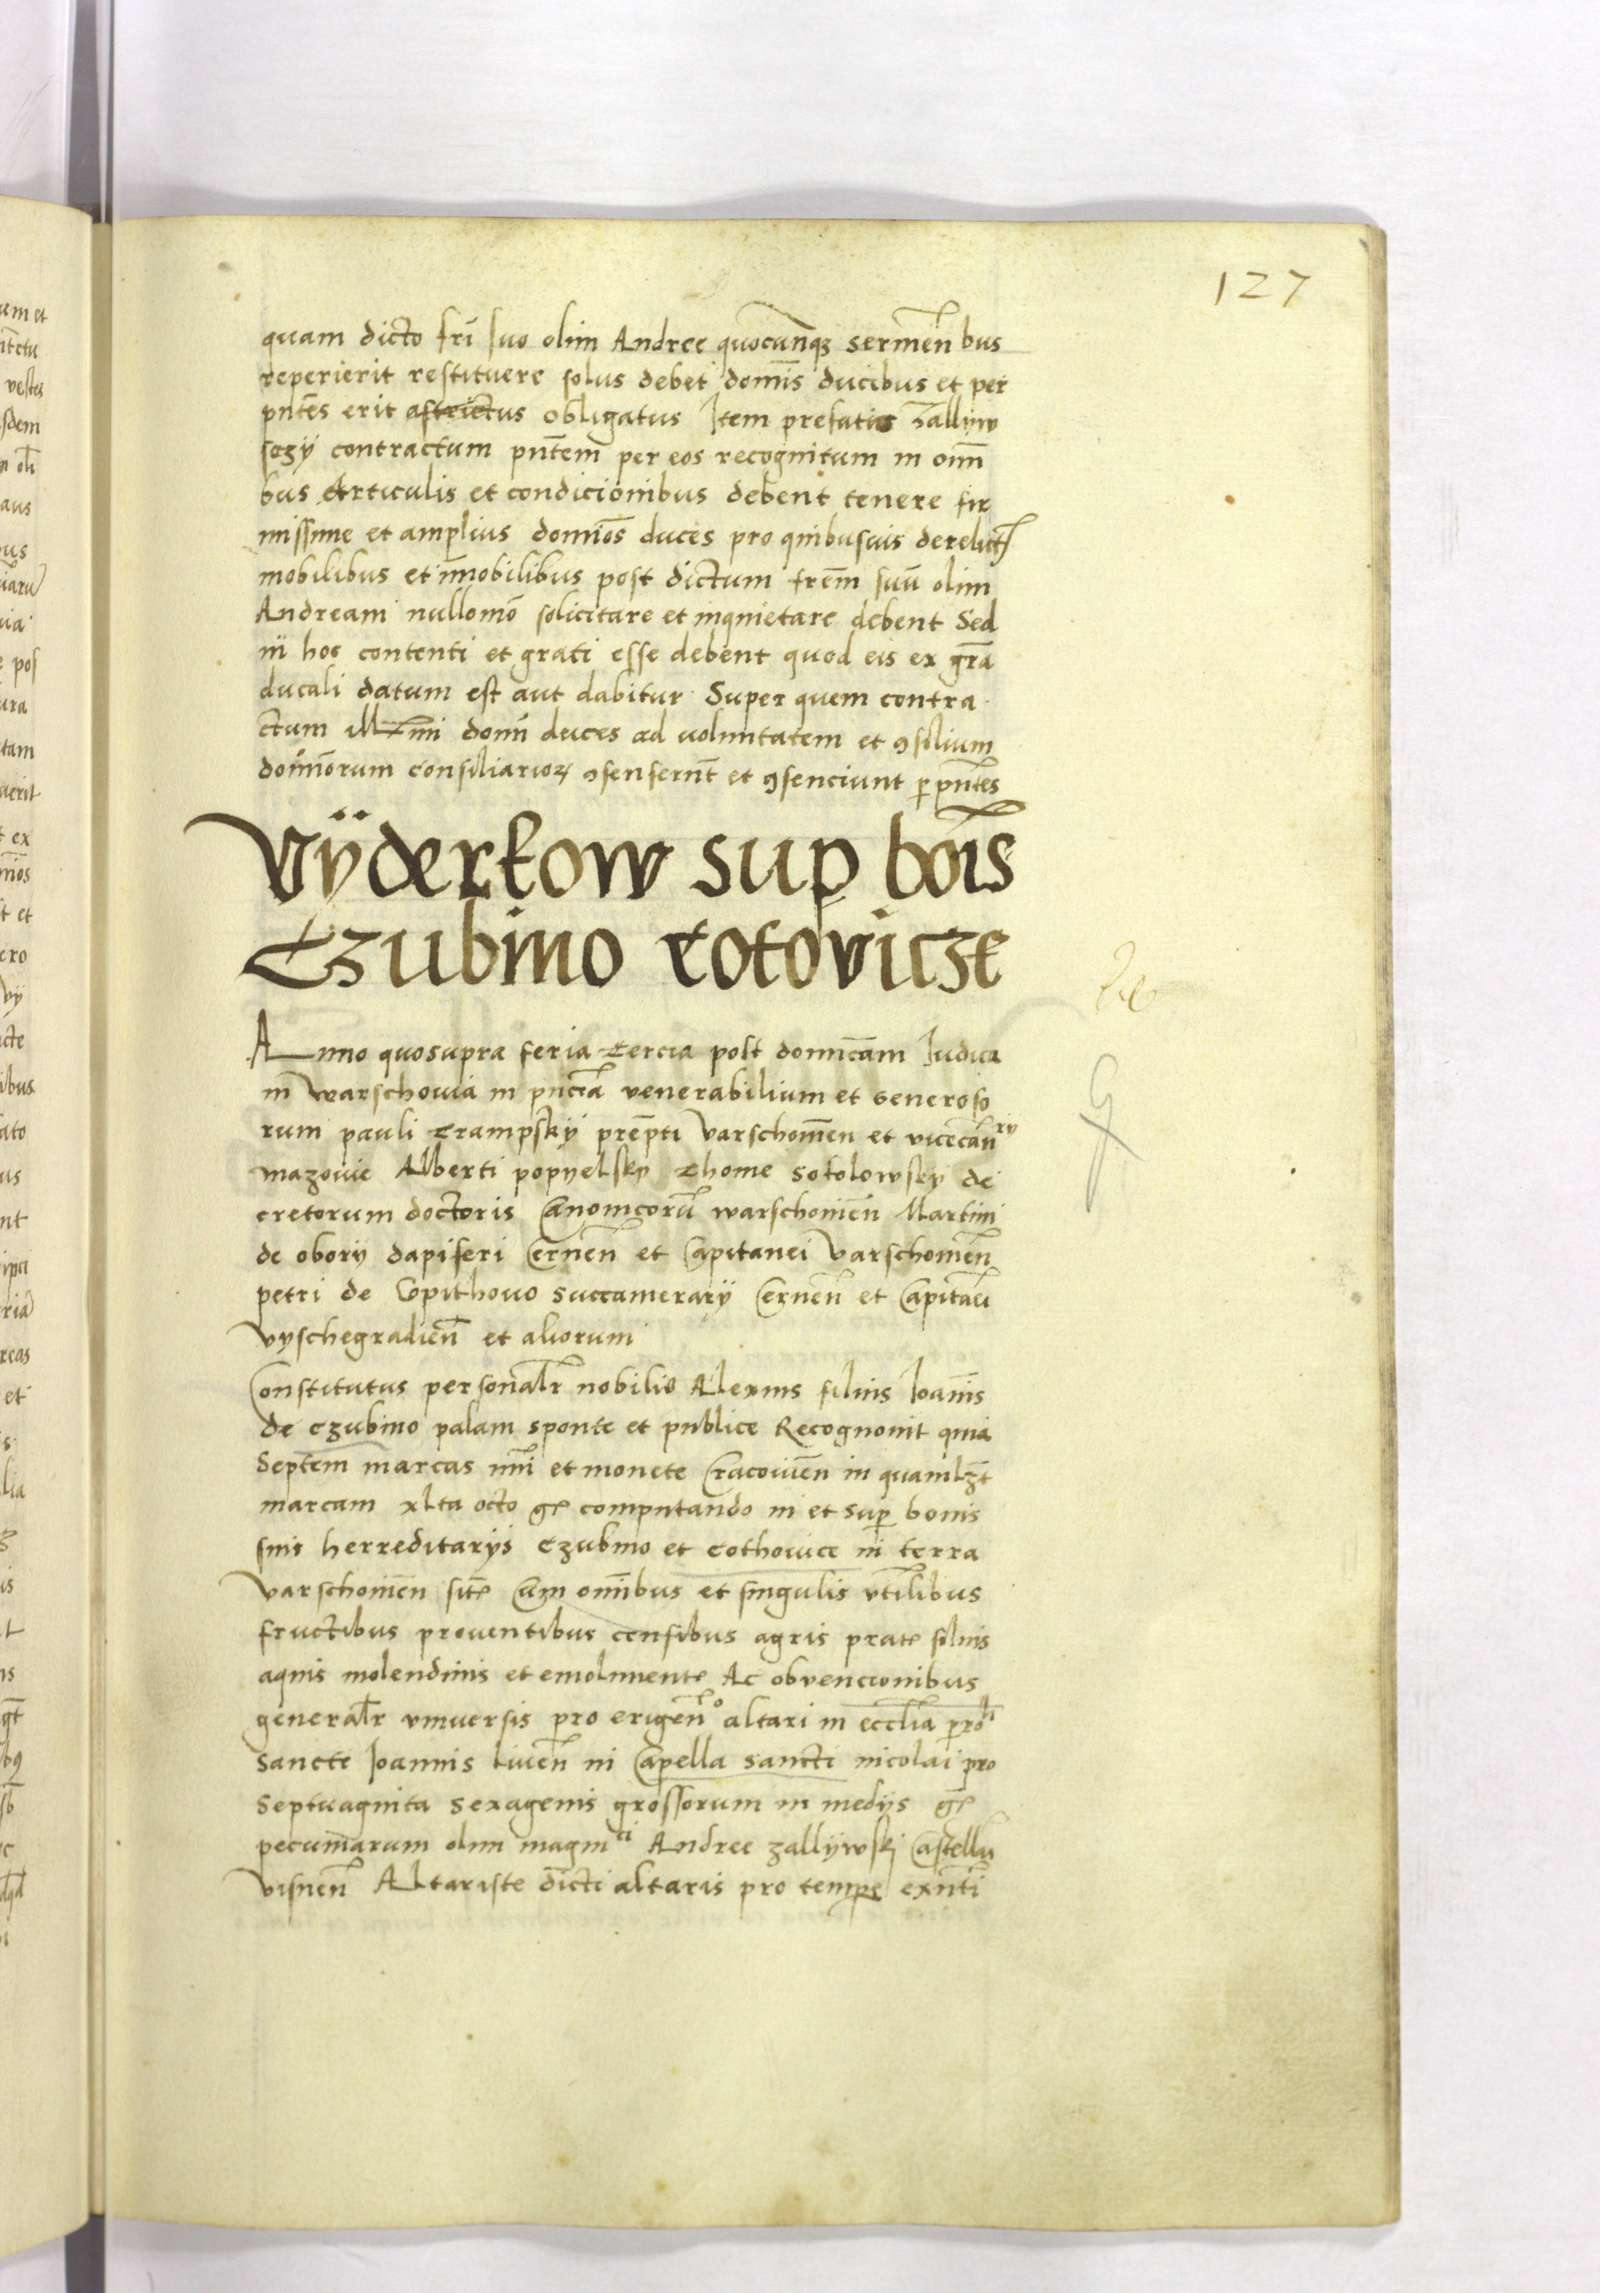 127
quam dicto fri suo olim Andree quocunqz sermen bus
reperierit restituere solus debet domīs ducibus et per
pntēs erit astrictus obligatus Item prefatis Zallyw
sczÿ contractum pntem per eos recognitum in omī
bus Articulis et condicionibus debent tenere fir
missime et amplius dominos duces pro quibusuis derelict
mobilibus et immobilibus post dictum frem̄ suū olim
Andream nullomō solicitare et inquietare debent Sed
in hoc contenti et grati esse debent quod eis ex grā
ducali datum est aut dabitur Super quem contra
ctum illmi domī duces ad voluntatem et ꝯsilium
dominorum consiliarioꝝ ꝯsenserūt et ꝯsenciunt per pntes
Vÿderkow sup bōis
Czubino Cotovicze
Anno quosupra feria tercia post domicam Iudica
in Warschovia in pncia venerabilium et generoso
rum pauli Crampskÿ prepti Varschouien et vicecanry
mazouie Alberti popyelsky Thome Sokolowsky de
cretorum doctoris Canonicorū warschouien Martini
de oborÿ dapiferi Cernen et Capitanei Varschouien
petri de Copithouo succamerarÿ Cernen et Capitaei
Vyschegradien et aliorum
Constitutus personalr nobilis Alexius filius Ioannis
de Czubino palam sponte et publice Recognouit quia
Septem marcas nri et monete Cracouien in quamlzt
marcam xlta octo gr computando in et sup bonis
suis herreditarÿs Czubino et Cothouice in terra
Varschouien sitr cum omibus et singulis vtilibus
fructibus prouentibus censibus agris pratr siluis
aquis molendinis et emolumentr Ac obvencionibus
generalr vniuersis pro erigeno altari in ecclia
sancte Ioannis Liuen in Capella sancti nicolai pro
septuaginta sexagenis grossorum in medÿs gr
pecuniarum olim magnci Andree zallywskj Castellai
Visnen Altariste dicti altaris pro tempe exnti